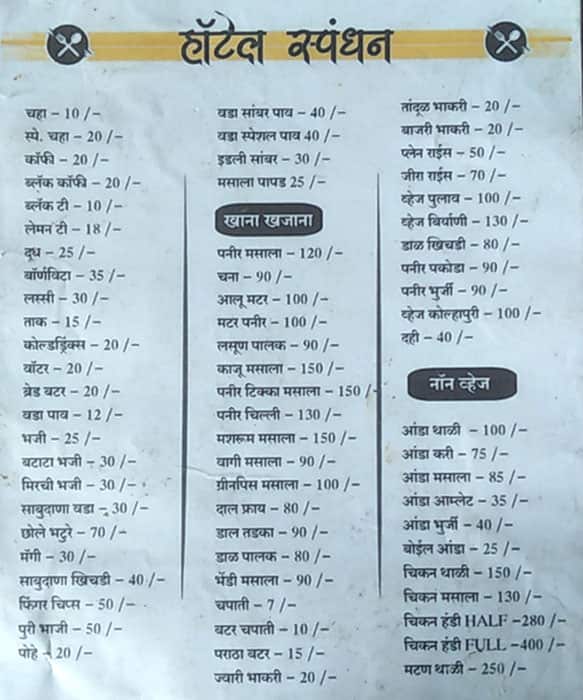 हॉटेल स्पंधन
चहा – 10 /–
स्पे. चहा – 20 /–
कॉफी – 20 /–
ब्लॅक कॉफी – 20 /–
ब्लॅक टी – 10 /–
लेमन टी – 18 /–
दूध – 25 /–
बॉर्णविटा – 35 /–
लस्सी – 30 /–
ताक – 15 /–
कोल्डड्रिंक्स – 20 /–
वॉटर – 20 /–
ब्रेड बटर – 20 /–
वडा पाव – 12 /–
भजी – 25 /–
बटाटा भजी – 30 /–
मिरची भजी – 30 /–
साबुदाणा वडा – 30 /–
छोले भटुरे – 70 /–
मॅगी – 30 /–
साबुदाणा खिचडी – 40 /–
फिंगर चिप्स – 50 /–
पुरी भाजी – 50 /–
पोहे – 20 /–
वडा सांबर पाव – 40 /–
वडा स्पेशल पाव 40 /–
इडली सांबर – 30 /–
मसाला पापड 25 /–
खाना खजाना
पनीर मसाला – 120 /–
चना – 90 /–
आलू मटर – 100 /–
मटर पनीर – 100 /–
लसूण पालक – 90 /–
काजू मसाला – 150 /–
पनीर टिक्का मसाला – 150 /–
पनीर चिल्ली – 130 /–
मशरूम मसाला – 150 /–
वागी मसाला – 90 /–
ग्रीनपिस मसाला – 100 /–
दाल फ्राय – 80 /–
डाल तडका – 90 /–
डाळ पालक – 80 /–
भेंडी मसाला – 90 /–
चपाती – 7 /–
बटर चपाती – 10 /–
पराठा बटर – 15 /–
ज्वारी भाकरी – 20 /–
तांदूळ भाकरी – 20 /–
बाजरी भाकरी – 20 /–
प्लेन राईस – 50 /–
जीरा राईस – 70 /–
व्हेज पुलाव – 100 /–
व्हेज बिर्याणी – 130 /–
डाळ खिचडी – 80 /–
पनीर पकोडा – 90 /–
पनीर भुर्जी – 90 /–
व्हेज कोल्हापुरी – 100 /–
दही – 40 /–
नॉन व्हेज
आंडा थाळी – 100 /–
आंडा करी – 75 /–
आंडा मसाला – 85 /–
आंडा आम्लेट – 35 /–
आंडा भुर्जी – 40 /–
बोईल आंडा – 25 /–
चिकन थाळी – 150 /–
चिकन मसाला – 130 /–
चिकन हंडी HALF –280 /–
चिकन हंडी FULL –400 /–
मटण थाळी – 250 /–